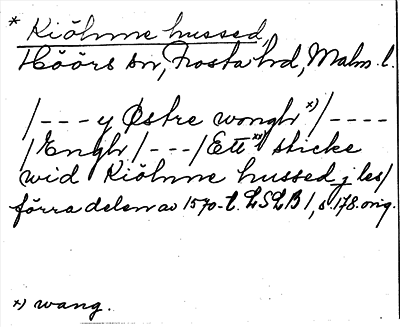 * Kiöhnne hussed,
Höörs sn, Frosta hd, Malm. l.
/--- y Østre wongh x)/----
/Engh/---/Ett xx) sticke
wid Kiöhnne hussed j les/
förra delen av 1570-t. LSLB 1, s. 178. orig.
x) wang.